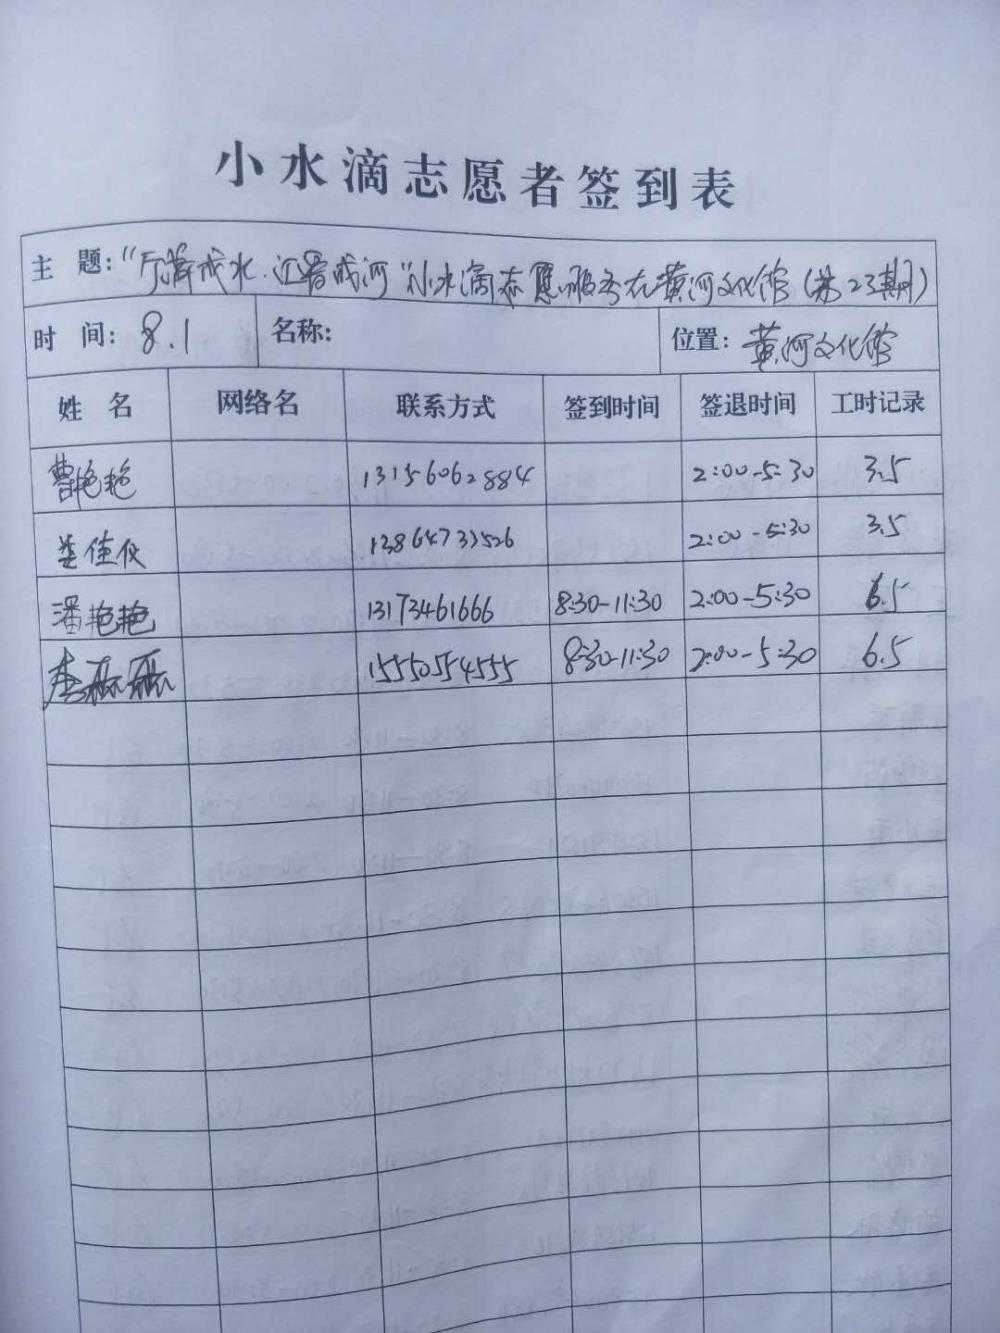 小水滴志愿者签到表
主 题：“万滴成水·汇署成河”小水滴志愿服务在黄河文化馆（第23期）
时 间：8.1 名称： 位置：黄河文化馆
姓 名 网络名 联系方式 签到时间 签退时间 工时记录
曹艳艳 13156062884 2:00-5:30 3.5
娄佳仪 13864733526 2:00-5:30 3.5
潘艳艳 13173461666 8:30-11:30 2:00-5:30 6.5
李磊磊 15550554555 8:30-11:30 2:00-5:30 6.5